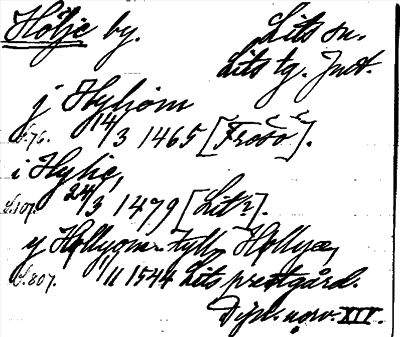 Höljc by. Lits sn.
Lits tg. Jmt.
j Hylıom
S.76. 14/3 1465 [Frösö].
i Hylie,
S.107. 24/3 1479 [Lit?].
y Hollyom tyll Hollyæ,
S.807. 1/11 1544 Lits prestgård.
Dipl. norv. XIV.